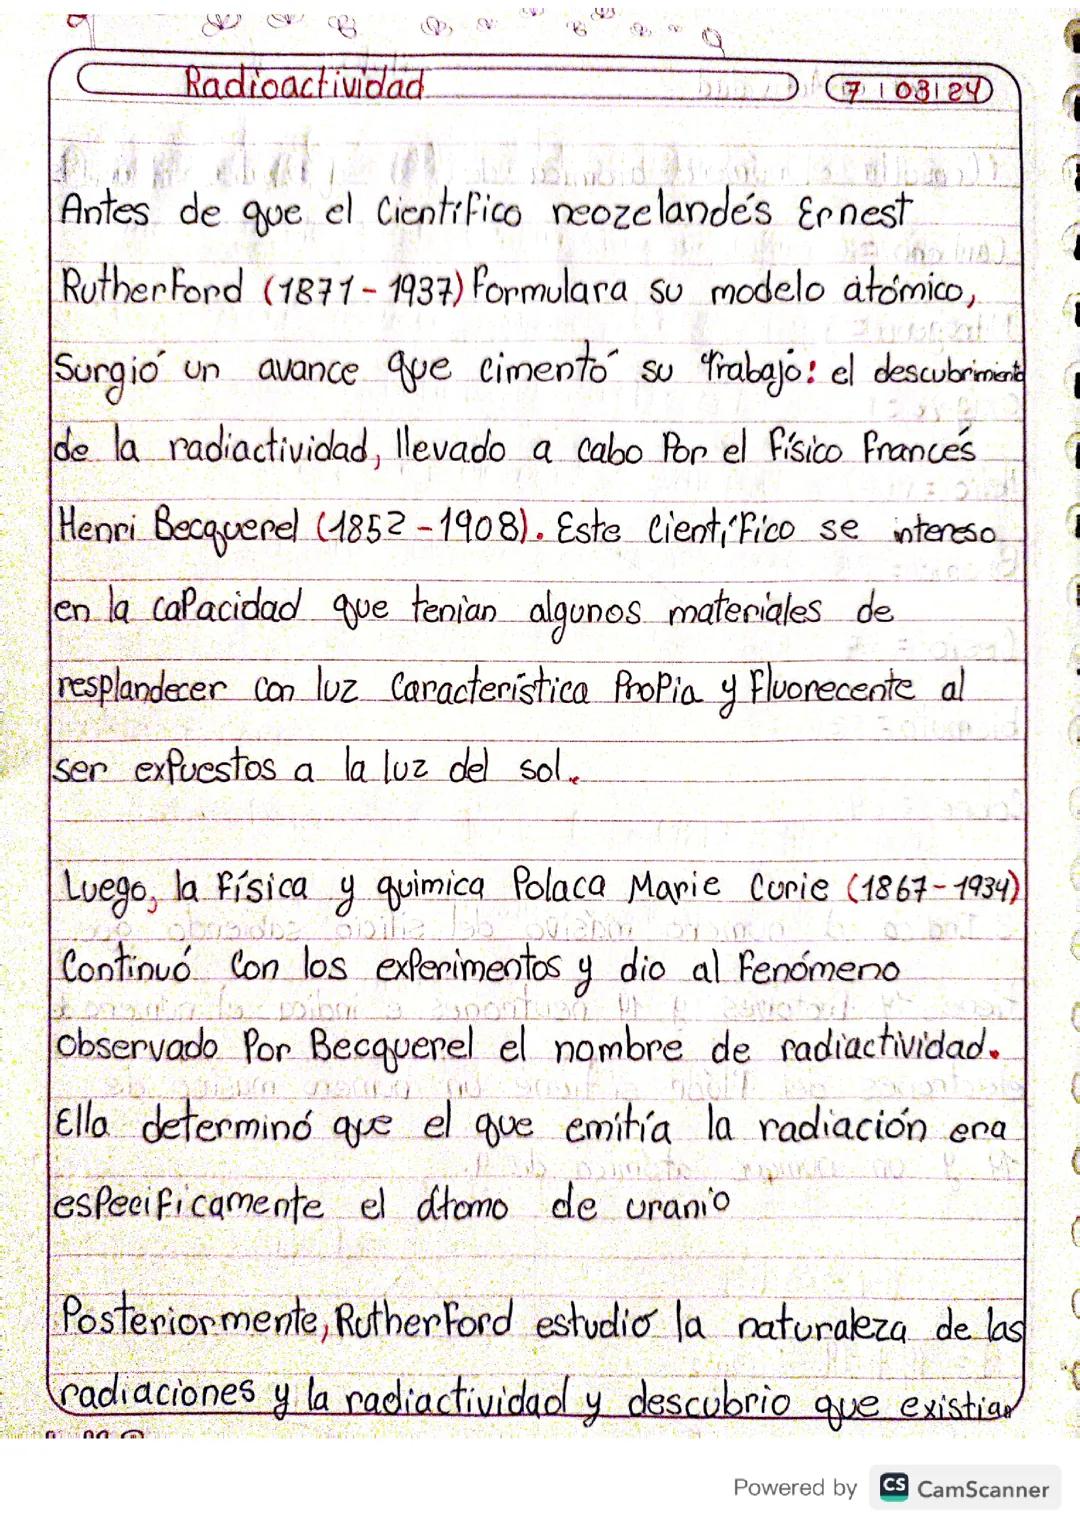 Radioactividad
7 | 03 | 24
Antes de que el Científico neozelandés Ernest
Rutherford (1871-1937) formulara su modelo atómico,
Surgió un avance que cimentó su trabajo: el descubrimiento
de la radiactividad, llevado a cabo Por el físico francés
Henri Becquerel (1852-1908). Este Científico se intereso
en la caPacidad que tenian algunos materiales de
resplandecer con luz Característica ProPia y Fluorecente al
ser exPuestos a la luz del sol.
Luego, la Física y quimica Polaca Marie Curie (1867-1934)
Continuó Con los exPerimentos y dio al Fenómeno
observado Por Becquerel el nombre de radiactividad.
Ella determinó que el que emitía la radiación era
esPecificamente el átomo de uranio
Posteriormente, Rutherford estudió la naturaleza de las
radiaciones y la radiactividad y descubrio que existian
Powered by CS CamScanner